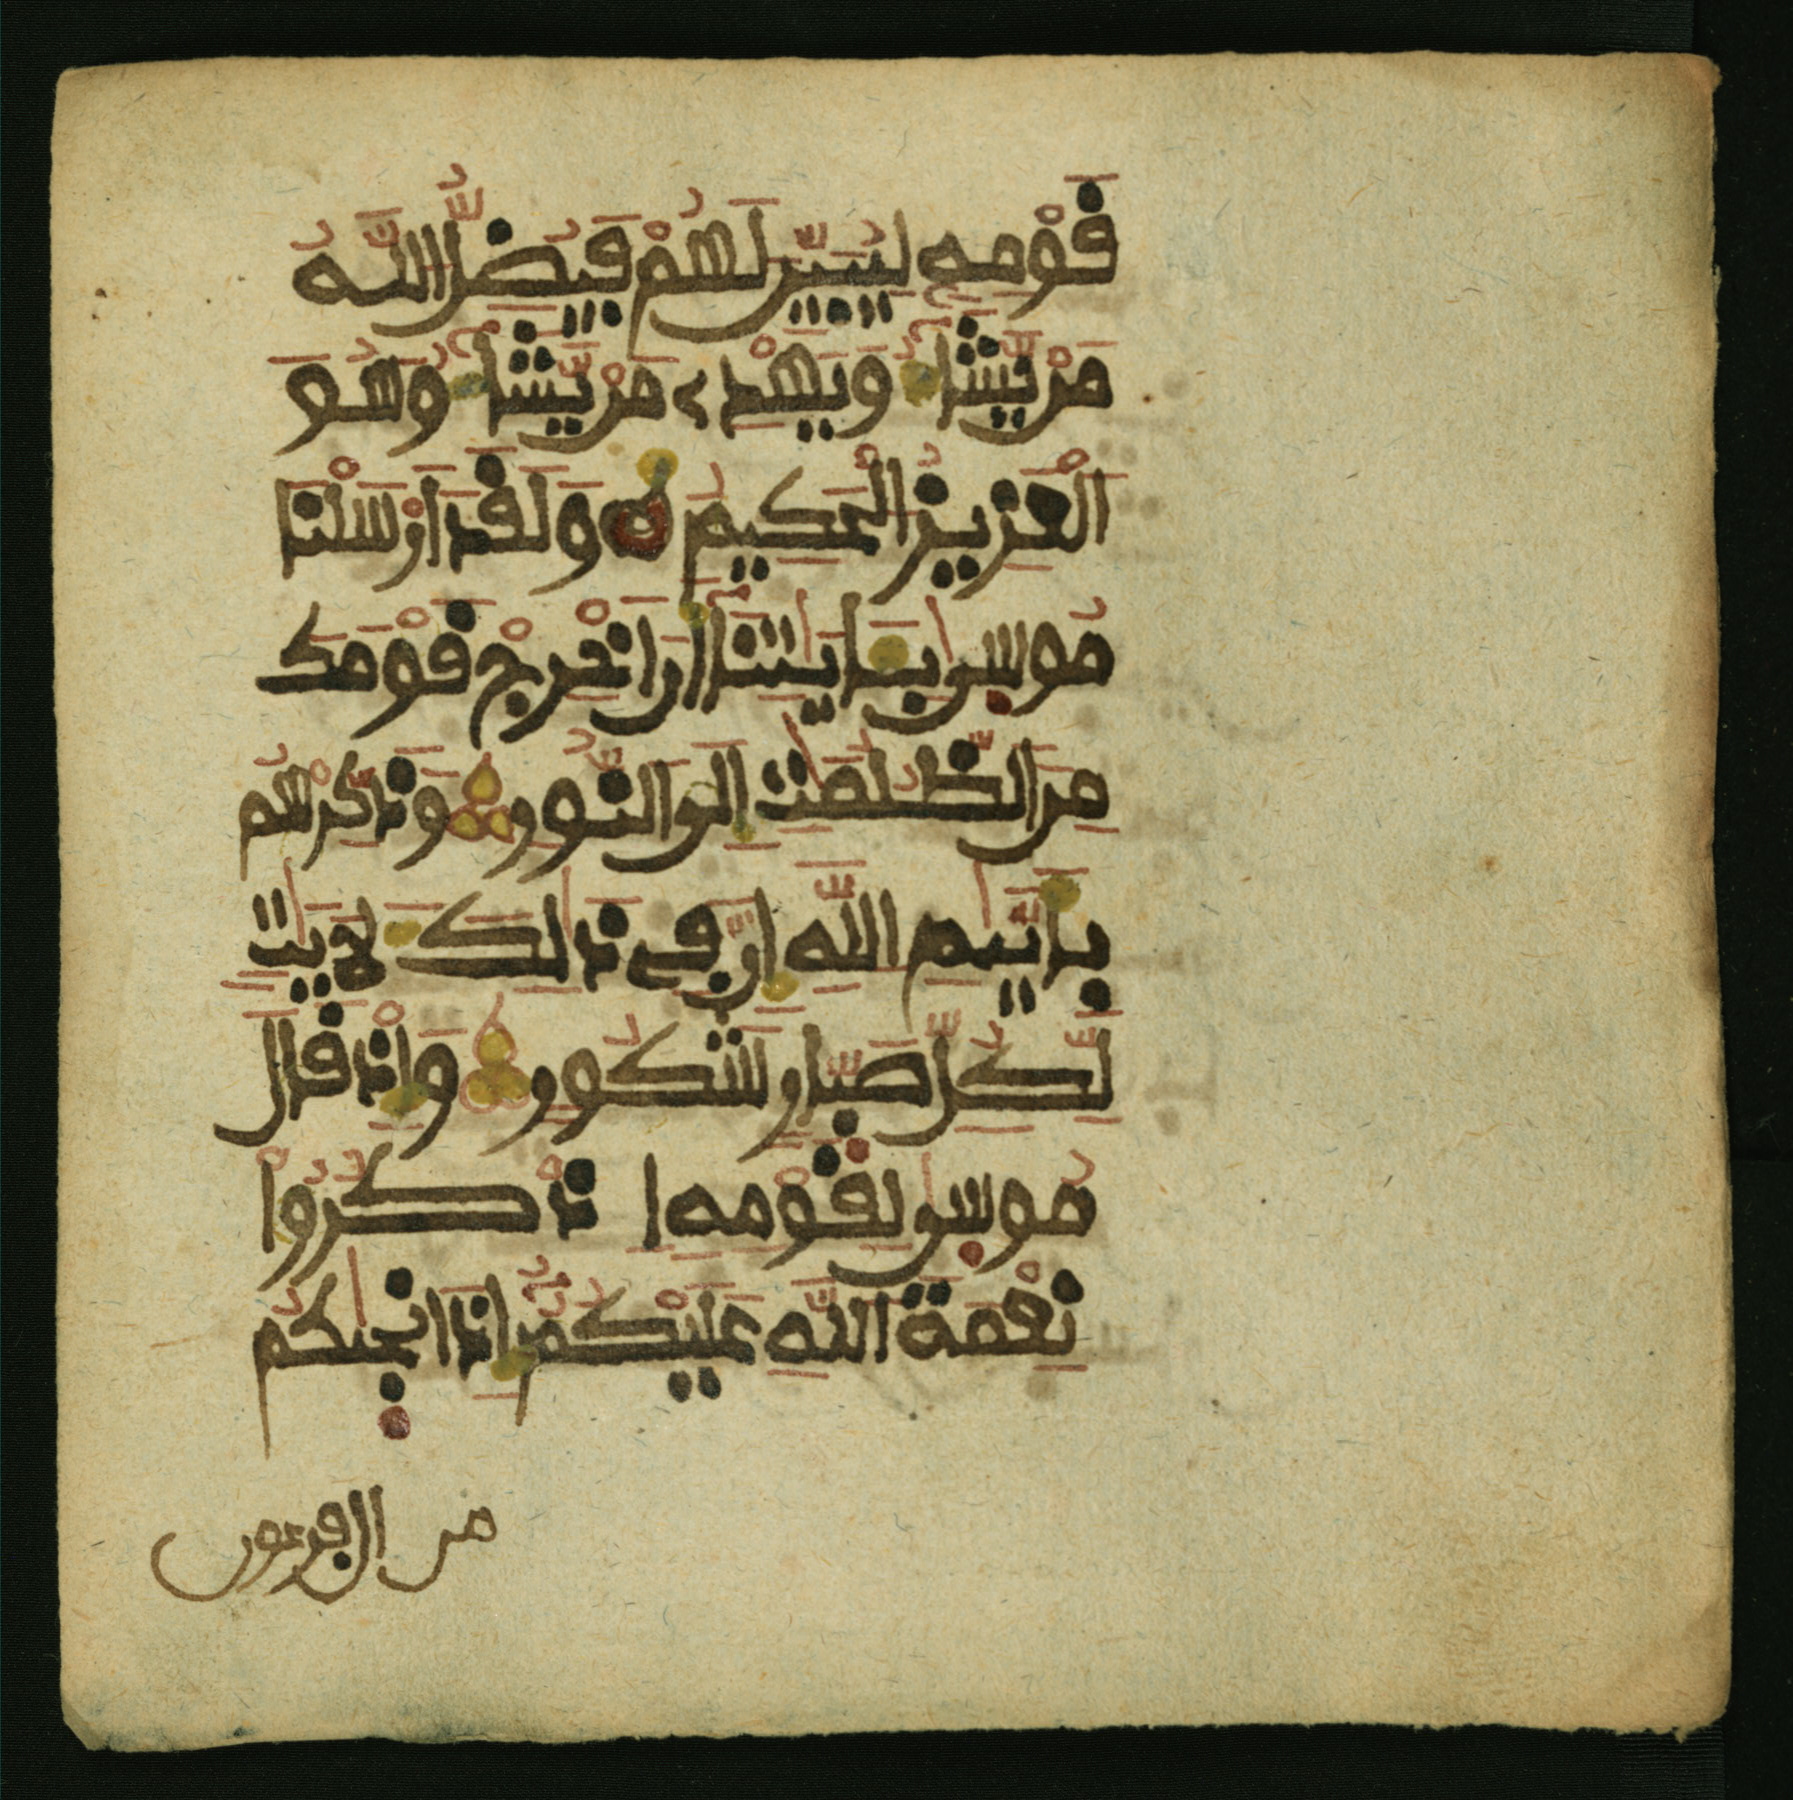 قَوْمِهِ لِيُبَيِّنَ لَهُمْ فَيُضِلُّ اللَّهُ
مَنْ يَّشَآءُ وَيَهْدِے مَنْ يَّشَآءُ وَهُوَ
الْعَزِيزُ الْحَكِيمُ وَلَقَدَ اَرْسَلْنَا
مُوسىٰ بِـَٔايَٰتِنَآ أَنَ اَخْرِجْ قَوْمَكَ
مِنَ الظُّلُمَٰتِ إِلَى النُّورِ وَذَكِّرْهُم
بِأَيَّيٰمِ اللَّهِ إِنَّ فِے ذَٰلِكَ لَأَيَٰتٍ
لِّكُلِّ صَبَّارٍ شَكُورٍ وَإِذْ قَالَ
مُوسىٰ لِقَوْمِهِ اذْكُرُوا
نِعْمَةَ اللَّهِ عَلَيْكُمُۥٓ إِذَ اَنجىٰكُم
من ال فرعون